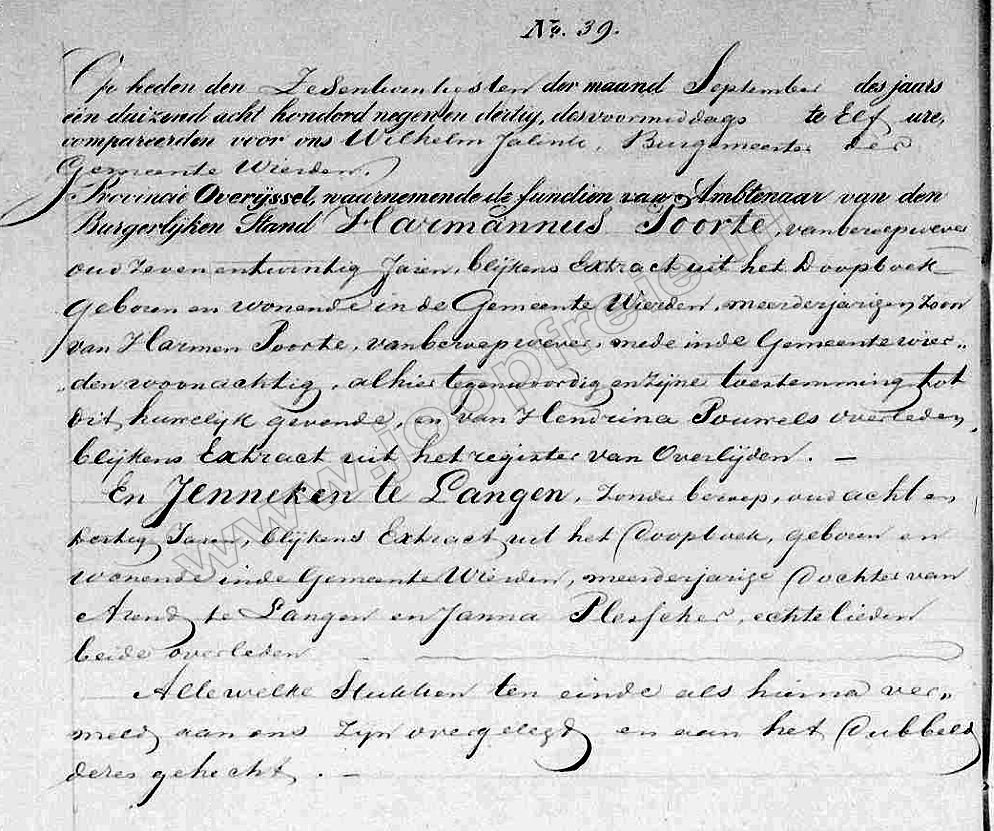 No. 39.
Op heden den Zesentwintigsten der maand September des jaars
één duizend acht honderd negen en dertig, des voormiddags te Elf ure,
compareerden voor ons Wilhelm Jalink, Burgemeester der
Gemeente Wierden.
Provincie Overijssel, waarnemende de functien van Ambtenaar van den
Burgerlijken Stand Harmannus Poorte, van beroep wever
oud Zeven en twintig Jaren, blijkens Extract uit het Doopboek
geboren en wonende in de Gemeente Wierden, meerderjarigen Zoon
van Harmen Poorte, van beroep wever, mede in de Gemeente Wier„
„den woonachtig, alhier tegenwoordig en zijne toestemming tot
dit huwelijk gevende, en van Hendrina Pouwels overleden,
blijkens Extract uit het register van Overlijden. —
En Jenneken te Langen, Zonder beroep, oud acht en
dertig Jaren, blijkens Extract uit het Doopboek, geboren en
wonende in de Gemeente Wierden, meerderjarige Dochter van
Arend te Langen en Janna Plesscher, echtelieden
beide overleden
Alle welke Stukken ten einde als hierna ver„
meld aan ons zijn overgelegt en aan het Dubbeld
deres gehecht. —
www.joopfree.nl